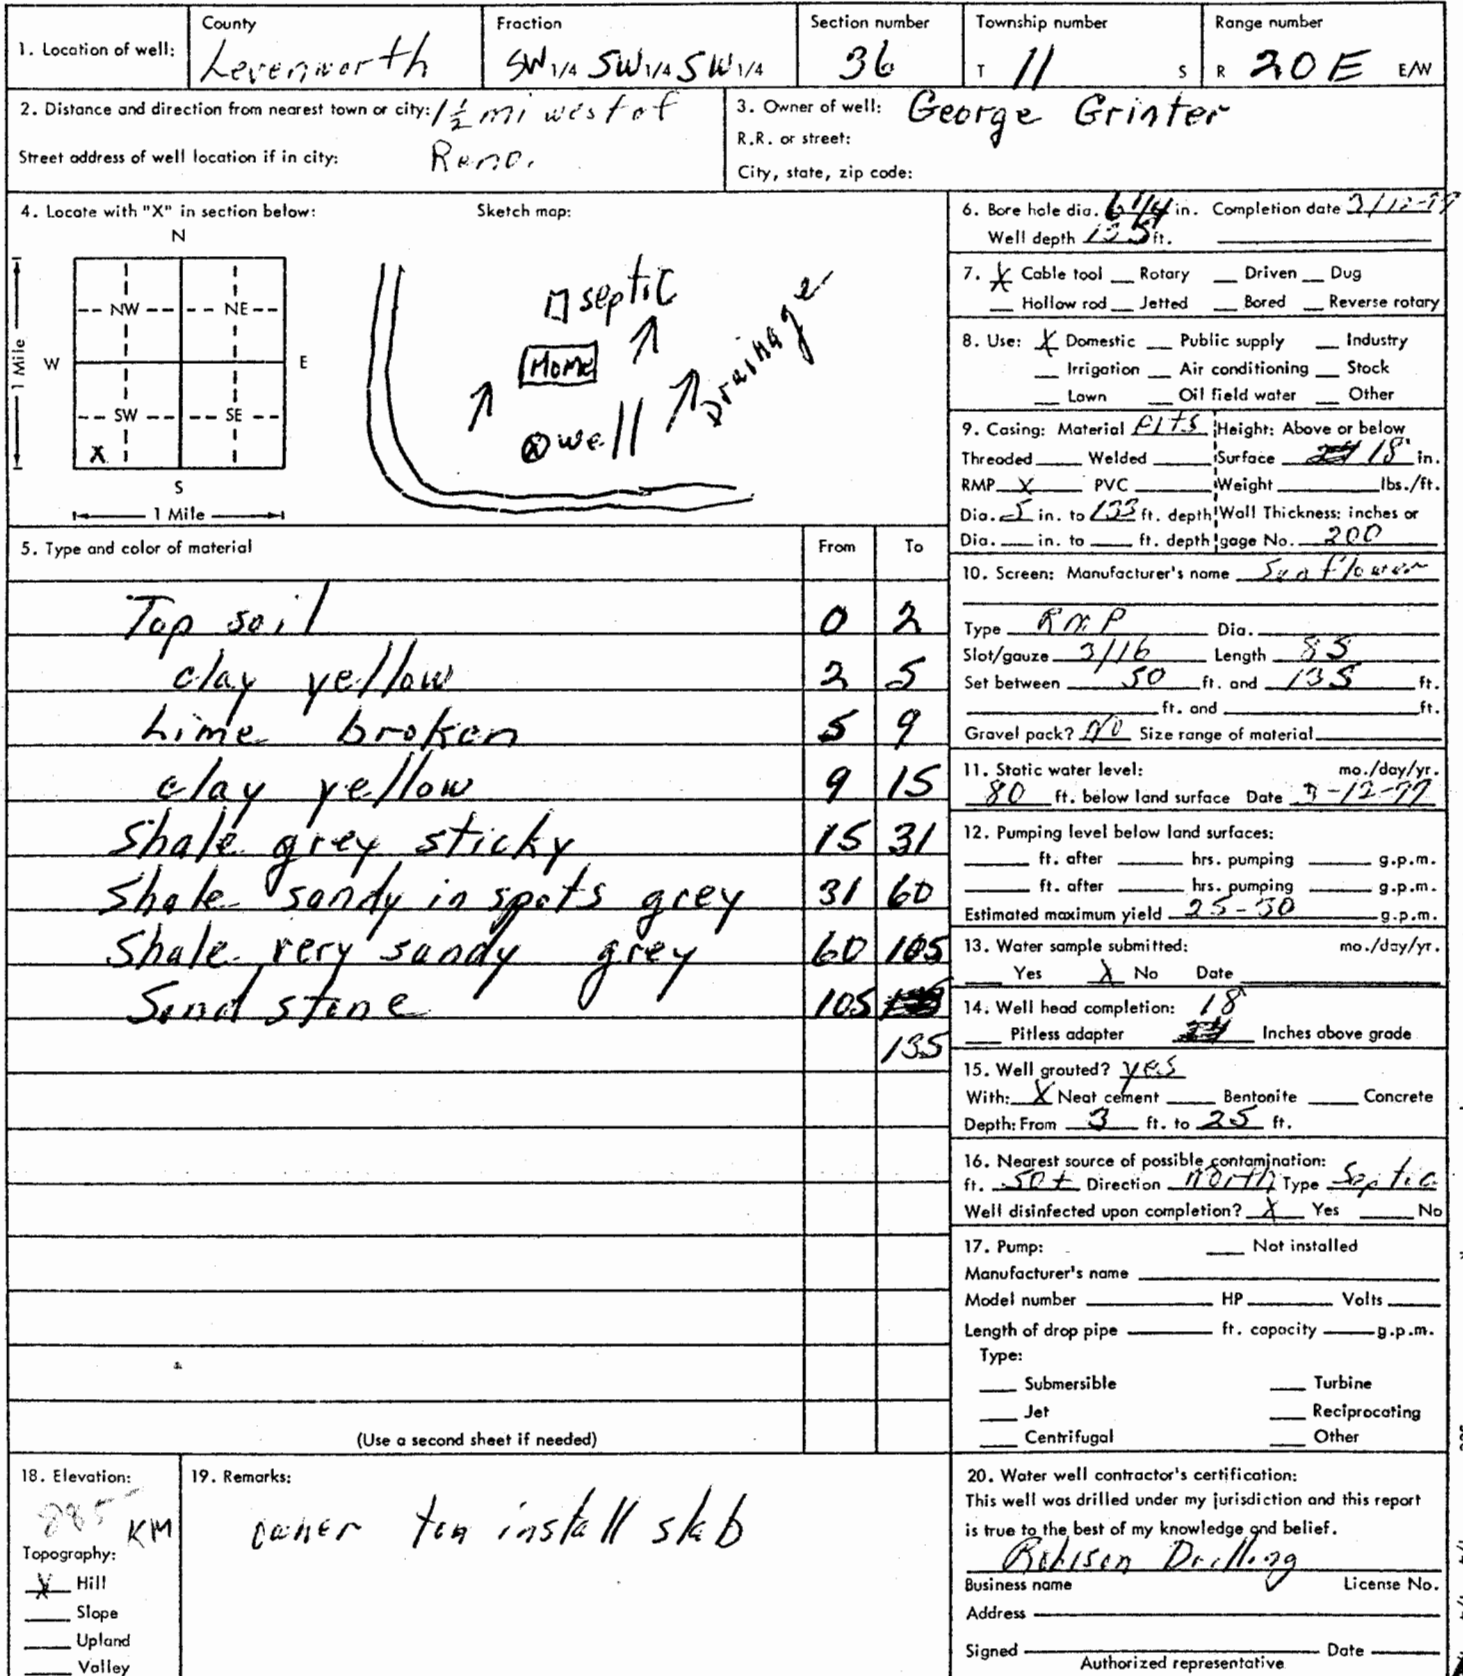 County Fraction Section number Township number Range number
1. Location of well: Levenworth SW 1/4 SW 1/4 SW 1/4 36 T 11 S R 20E E/W
2. Distance and direction from nearest town or city: 1 1/2 mi west of
Street address of well location if in city: Reno.
3. Owner of well: George Grinter
R.R. or street:
City, state, zip code:
4. Locate with "X" in section below: Sketch map:
N
NW NE
W E
SW SE
X
S
1 Mile
1 Mile
septic
Home
well
Drainage
5. Type and color of material From To
Top soil 0 2
clay yellow 2 5
Lime broken 5 9
clay yellow 9 15
Shale grey sticky 15 31
Shale sandy in spots grey 31 60
Shale very sandy grey 60 105
Sand stone 105
135
(Use a second sheet if needed)
6. Bore hole dia. 6 1/4 in. Completion date 3/12-77
Well depth 135 ft.
7. X Cable tool Rotary Driven Dug
Hollow rod Jetted Bored Reverse rotary
8. Use: X Domestic Public supply Industry
Irrigation Air conditioning Stock
Lawn Oil field water Other
9. Casing: Material Height: Above or below
Threaded Welded Surface 18 in.
RMP X PVC Weight lbs./ft.
Dia. 5 in. to 133 ft. depth Wall Thickness: inches or
Dia. in. to ft. depth gage No. 200
10. Screen: Manufacturer's name Sunflower
Type RMP Dia.
Slot/gauze 3/16 Length 85
Set between 50 ft. and 135 ft.
ft. and ft.
Gravel pack? No Size range of material
11. Static water level: mo./day/yr.
80 ft. below land surface Date 3-12-77
12. Pumping level below land surfaces:
ft. after hrs. pumping g.p.m.
ft. after hrs. pumping g.p.m.
Estimated maximum yield 25-30 g.p.m.
13. Water sample submitted: mo./day/yr.
Yes X No Date
14. Well head completion: 18
Pitless adapter Inches above grade
15. Well grouted? yes
With: X Neat cement Bentonite Concrete
Depth: From 3 ft. to 25 ft.
16. Nearest source of possible contamination:
ft. 50+ Direction North Type Septic
Well disinfected upon completion? X Yes No
17. Pump: Not installed
Manufacturer's name
Model number HP Volts
Length of drop pipe ft. capacity g.p.m.
Type:
Submersible Turbine
Jet Reciprocating
Centrifugal Other
18. Elevation:
885 KM
Topography:
X Hill
Slope
Upland
Valley
19. Remarks:
owner ton install slab
20. Water well contractor's certification:
This well was drilled under my jurisdiction and this report
is true to the best of my knowledge and belief.
Robison Drilling
Business name License No.
Address
Signed Date
Authorized representative